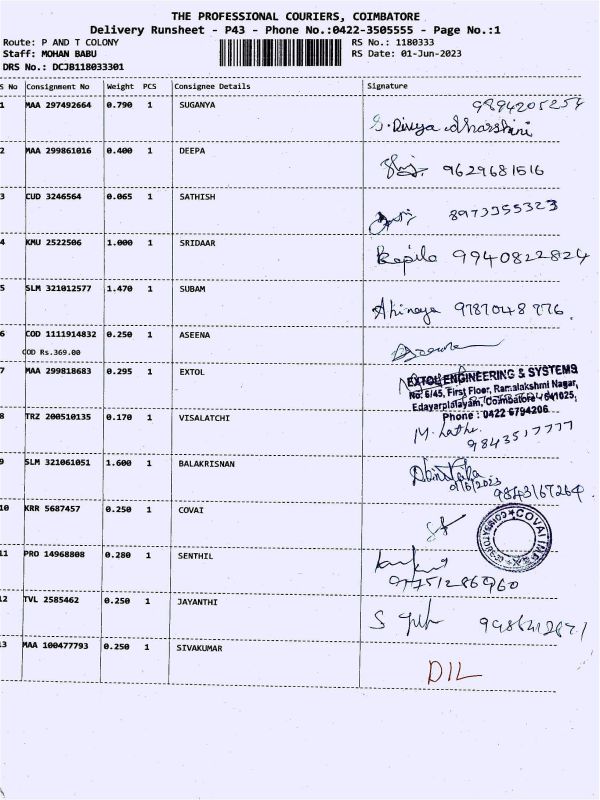 THE PROFESSIONAL COURIERS, COIMBATORE
Delivery Runsheet - P43 - Phone No.:0422-3505555 - Page No.:1
Route: P AND T COLONY RS No.: 1180333
Staff: MOHAN BABU RS Date: 01-Jun-2023
DRS No.: DCJB118033301
S No Consignment No Weight PCS Consignee Details Signature
1 MAA 297492664 0.790 1 SUGANYA 9894205254
S. Divya dharshini
2 MAA 299861016 0.400 1 DEEPA 9629681516
3 CUD 3246564 0.065 1 SATHISH 8973355323
4 KMU 2522506 1.000 1 SRIDAAR Kapila 9940822824
5 SLM 321012577 1.470 1 SUBAM Abinaya 9787048776.
6 COD 1111914832 0.250 1 ASEENA Aseena
COD Rs.369.00
7 MAA 299818683 0.295 1 EXTOL
EXTOL ENGINEERING & SYSTEMS
No: 6/45, First Floor, Ramalakshmi Nagar,
Edayarpalayam, Coimbatore - 641025,
Phone : 0422 6794206
8 TRZ 200510135 0.170 1 VISALATCHI M. Latha
9843517777
9 SLM 321061051 1.600 1 BALAKRISNAN
1/6/2023 9843167264
10 KRR 5687457 0.250 1 COVAI
11 PRO 14968808 0.280 1 SENTHIL
12 TVL 2585462 0.250 1 JAYANTHI
13 MAA 100477793 0.250 1 SIVAKUMAR DIL